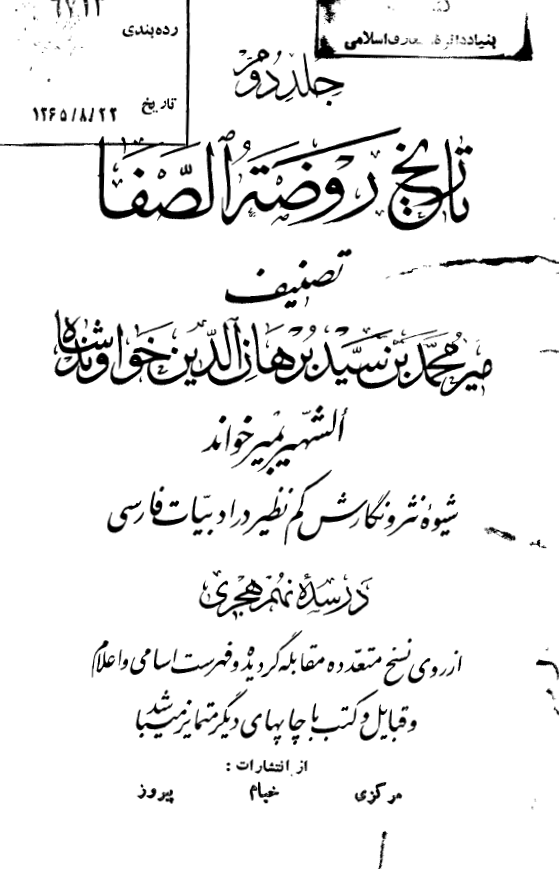 رده‌بندی
تاریخ
۱۳۶۵/۸/۲۲
جلد دوم
تاریخ روضة الصفا
تصنیف
میر محمد بن سید برهان الدین خواوند شاه
الشهیر بمیر خواند
شیوهٔ نثر و نگارش کم نظیر در ادبیات فارسی
در سدهٔ نهم هجری
از روی نسخ متعدده مقابله گردیده و فهرست اسامی و اعلام
و قبایل و کتب با چاپهای دیگر متمایز میباشد
از انتشارات :
مرکزی خیام پیروز